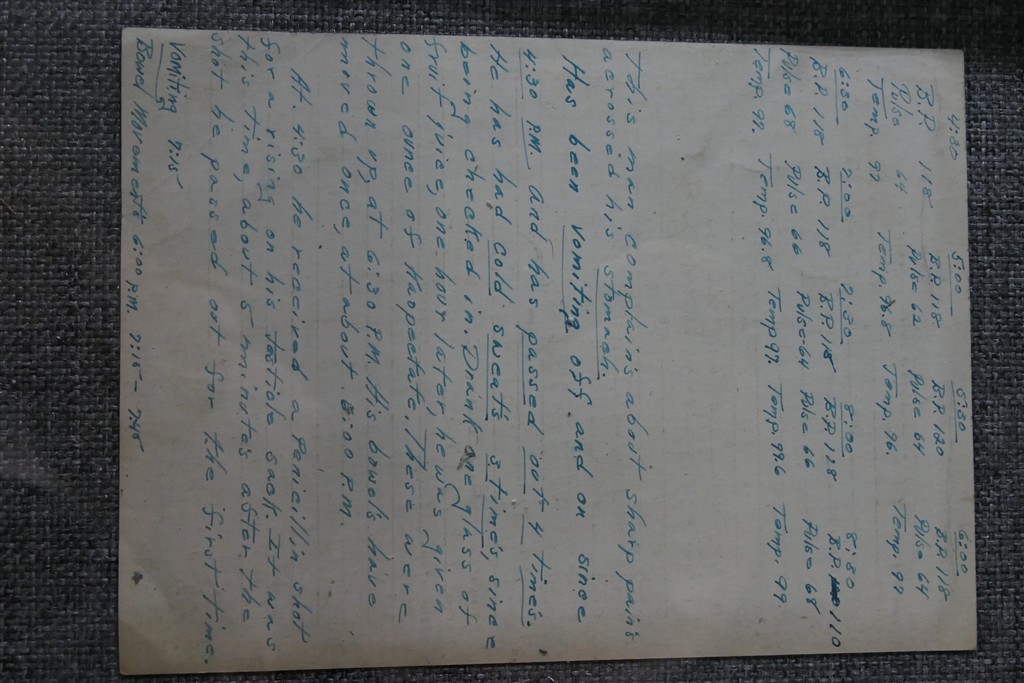 4:30 5:00 5:30 6:00
B.P. 118 B.P. 118 B.P. 120 B.P. 118
Pulse 64 Pulse 62 Pulse 64 Pulse 64
Temp. 97 Temp. 96.8 Temp. 96. Temp. 97
6:30 7:00 7:30 8:00 8:30
B.P. 118 B.P. 118 B.P. 118 B.P. 118 B.P. 110
Pulse 68 Pulse 66 Pulse 64 Pulse 66 Pulse 68
Temp. 97. Temp. 96.8 Temp 97. Temp. 99.6 Temp. 99.
This man complain's about sharp pain's
acrossed his stomach.
Has been vomiting off and on since
4:30 P.M. and has passed out 4 times.
He has had cold sweats 3 time's, since
being checked in. Drank one glass of
fruit juice, one hour later, he was given
one ounce of Kaopectate. These were
thrown up, at 6:30 P.M. His bowels have
moved once, at about 6:00 P.M.
At 4:30 he received a Penicillin shot
for a rising on his testicle sack. It was
this time, about 5 minutes after the
shot he passed out for the first time.
Vomiting 7:15
Bowel Movements 6:00 P.M. 7:15 - 7:45